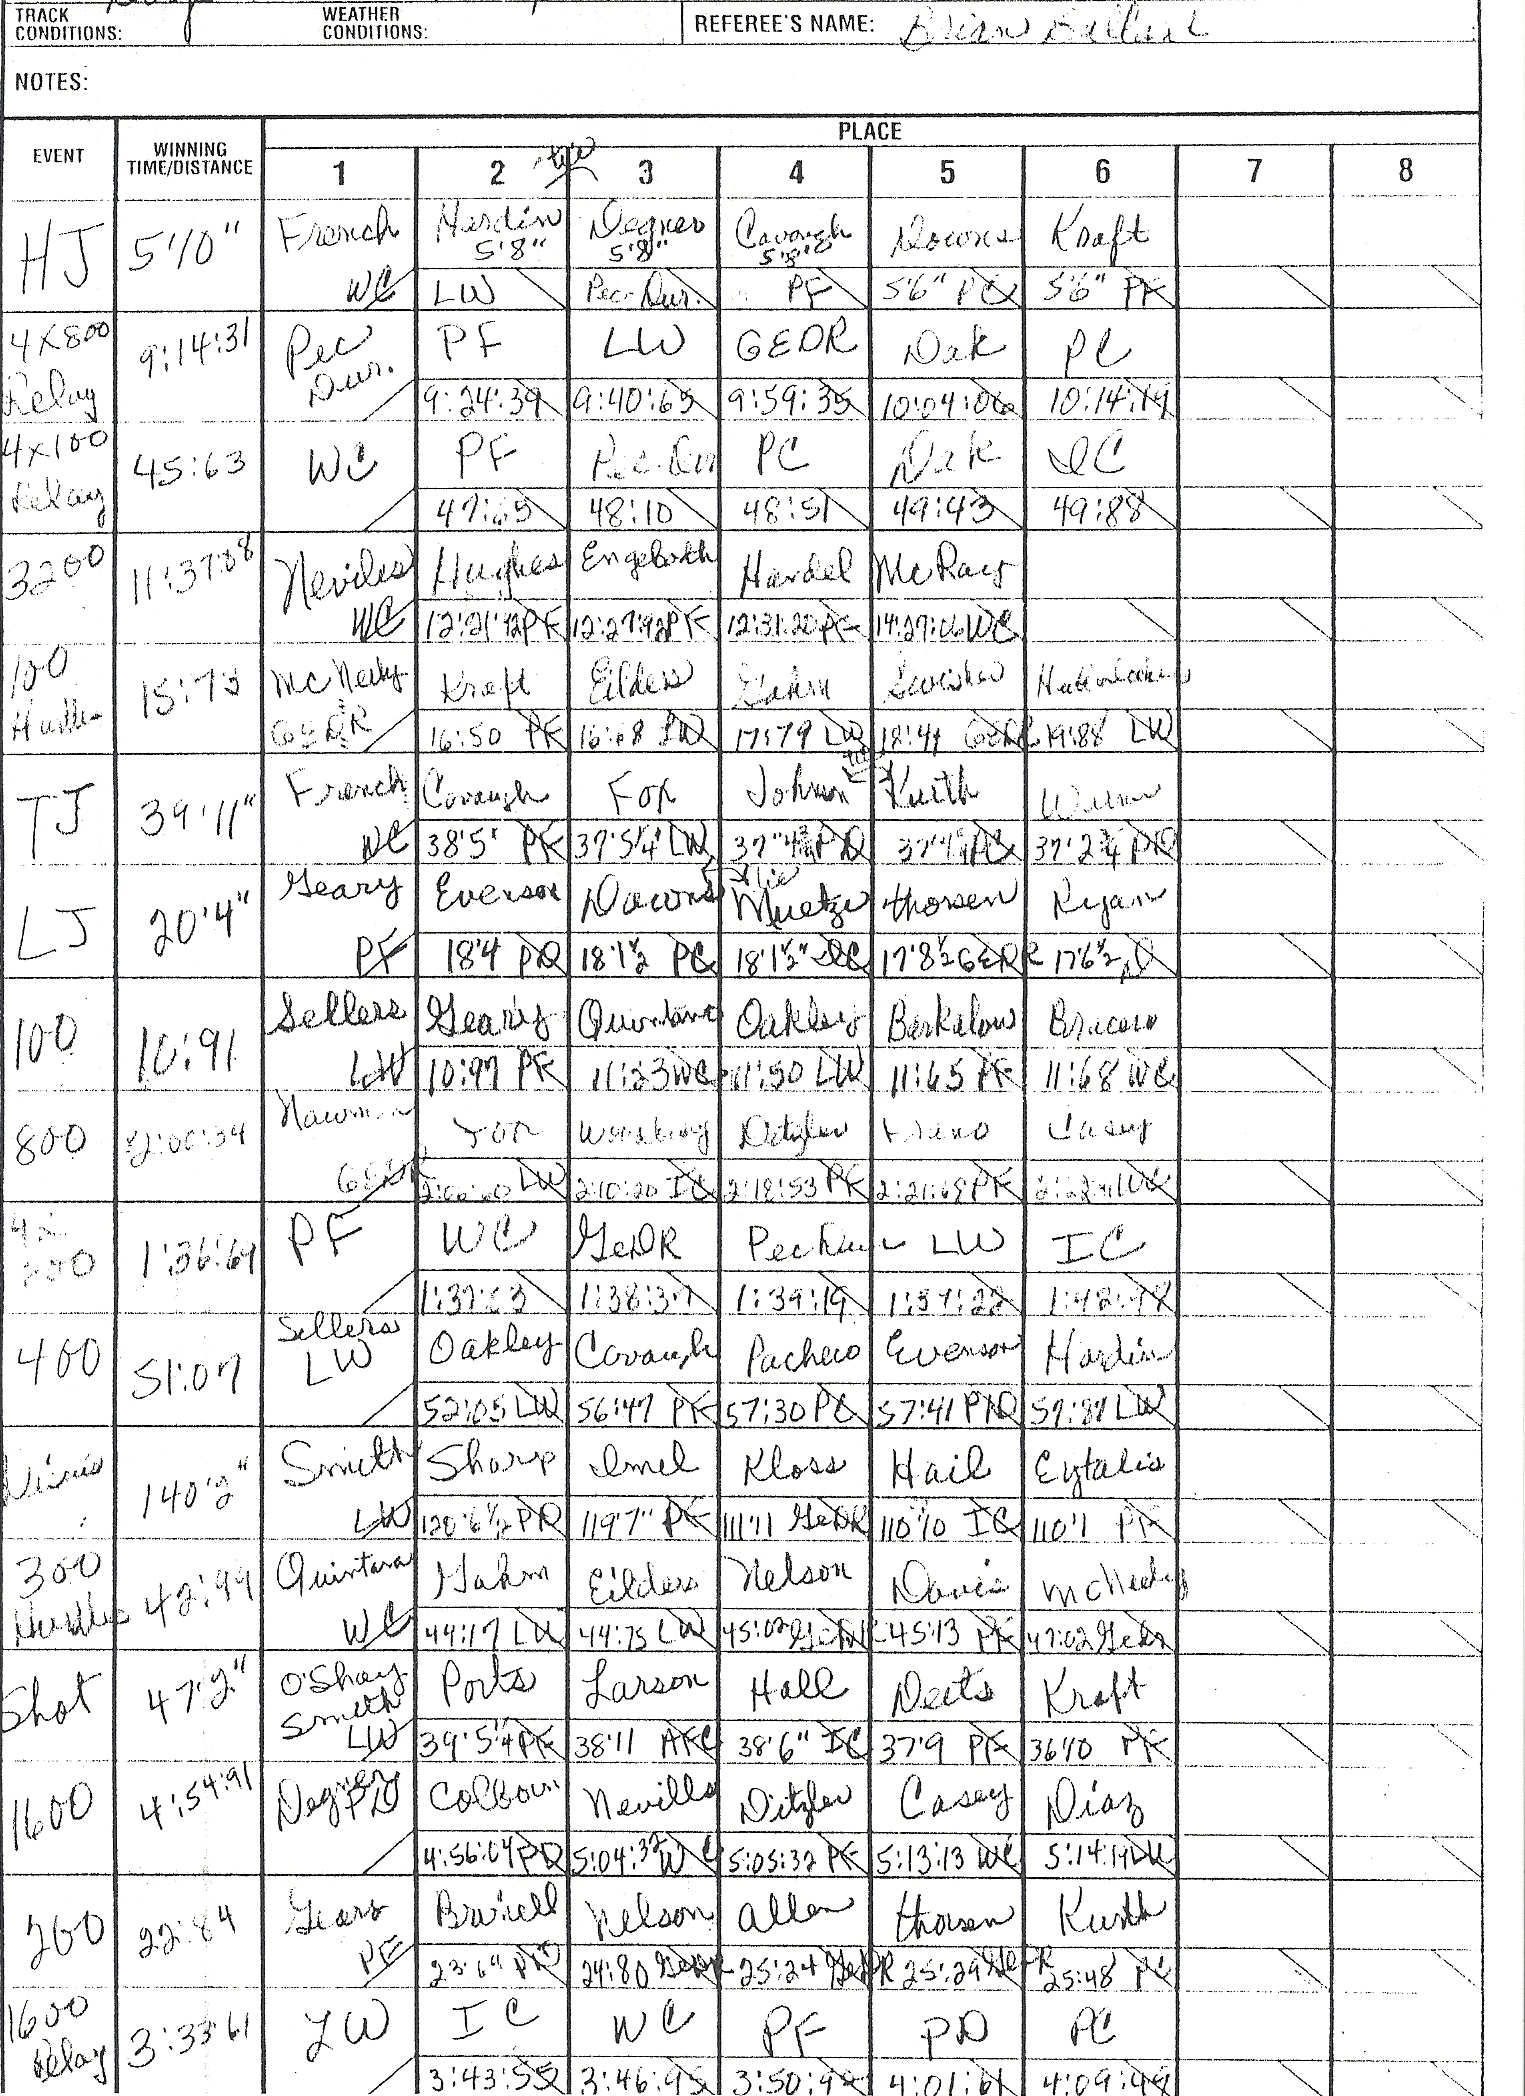 TRACK CONDITIONS:
WEATHER CONDITIONS:
REFEREE'S NAME: Brian
NOTES:
EVENT WINNING TIME/DISTANCE PLACE
1 2 tie 3 4 5 6 7 8
HJ 5'10" French Hardin 5'8" Degner 5'8" Cavaugh 5'8" Downs Kraft
WC LW Pec. Dur. PF 5'6" PC 5'6" PF
4x800 Relay 9:14:31 Pec Dur. PF LW GEDR Oak PC
9:24:39 9:40:65 9:59:35 10:04:06 10:14:19
4x100 Relay 45:63 WC PF Pec. Dur PC Oak IC
47:65 48:10 48:51 49:43 49:88
3200 11:37:08 Neviles Hughes Engeboth Hardel McRay
WC 12:21:92 PF 12:27:92 PF 12:31:20 PF 14:27:06 WC
100 15:73 McNeely Kraft Eilders Gahm
GEDR 16:50 PF 16:68 LW 17:79 LW 18:49 GEDR 19:88 LW
TJ 39'11" French Cavaugh Fox Johnson Kurth
WC 38'5" PF 37'5 1/4" LW 37'4 3/4 PD 37'4 3/4 PC 37'2 3/4 PD
LJ 20'4" Geary Everson Downs tie Muetze thorsen Ryan
PF 18'4 PD 18'1 1/2 PC 18'1 1/2" IC 17'8 1/2 GEDR 17'6 1/2
100 10:91 Sellers Geary Quintana Oakley Barkalow Bracero
LW 10:97 PF 11:23 WC 11:50 LW 11:65 PF 11:68 WC
800 2:00:34 Fox Ditzler Casey
GEDR LW 2:10:20 IC 2:18:53 PF 2:21:68 PF WC
1:36:69 PF WC GeDR Pec Dur LW IC
1:37:63 1:38:37 1:39:19 1:39:22 1:42:98
400 51:07 Sellers LW Oakley Cavaugh Pacheco Everson Hardin
52:05 LW 56:47 PF 57:30 PC 57:41 PD 59:87 LW
Discus 140'2" Smith Sharp Imel Kloss Hail Eytalis
LW 120'6 1/2 PD 119'7" PF 111'11 GeDR 110'10 IC 110'1 PF
300 Hurdles 42:99 Quintana Gahm Eilders Nelson Davis McNeely
WC 44:17 LW 44:75 LW 45:02 GeDR 45:13 PF 47:02 GeDR
Shot 47'2" O'Shay Smith Ports Larson Hall Deets Kraft
LW 39'5 1/4 PF 38'11 AFC 38'6" IC 37'9 PF 36'10 PF
1600 4:54:91 Degner PD Colboun Nevills Ditzler Casey Diaz
4:56:04 PD 5:04:32 WC 5:05:32 PF 5:13:13 WC 5:14:14 LW
200 22:84 Geary Burrell Nelson Allen thorsen Kurth
PF PD 24:80 GeDR 25:24 GeDR 25:29 GeDR 25:48 PC
1600 Relay 3:33:61 LW IC WC PF PD PC
3:43:55 3:46:95 3:50:99 4:01:61 4:09:49